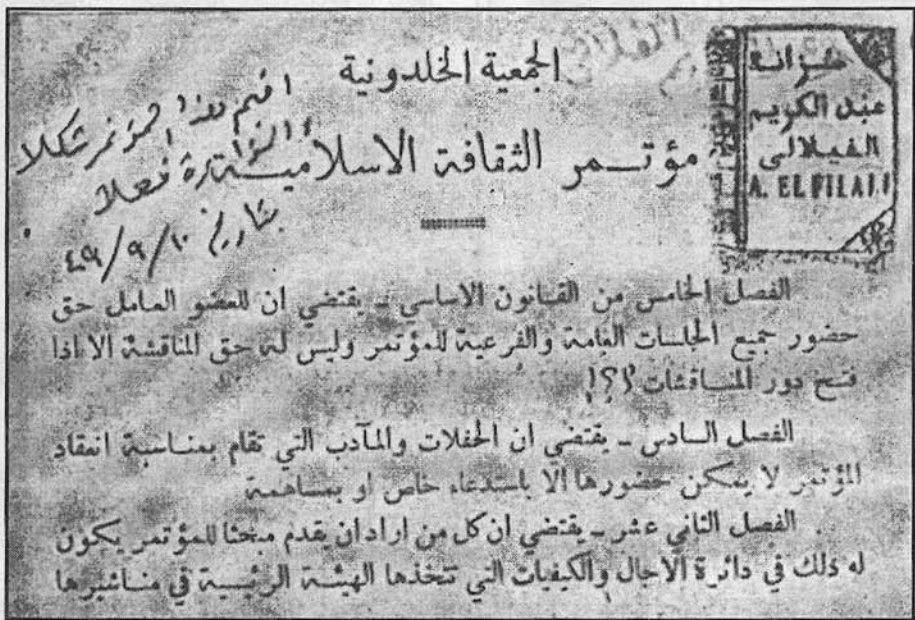 الجمعية الخلدونية
مؤتمر الثقافة الاسلامية
خزانة
عبد الكريم
الفيلالي
A. EL FILALI
اقيم هذا المؤتمر شكلا
فعلا
بتاريخ ٤٩/٩/١٠
الفصل الخامس من القانون الاساسى ـ يقتضي ان للعضو العامل حق
حضور جميع الجلسات العامة والفرعية للمؤتمر وليس له حق المناقشة الا اذا
فتح دور المناقشات ؟؟!
الفصل السادس ـ يقتضي ان الحفلات والمآدب التي تقام بمناسبة انعقاد
المؤتمر لا يمكن حضورها الا باستدعاء خاص او بمساهمة
الفصل الثاني عشر ـ يقتضي ان كل من اراد ان يقدم مبحثا للمؤتمر يكون
له ذلك في دائرة الاجال والكيفيات التي تتخذها الهيئة الرئيسية في مناشيرها